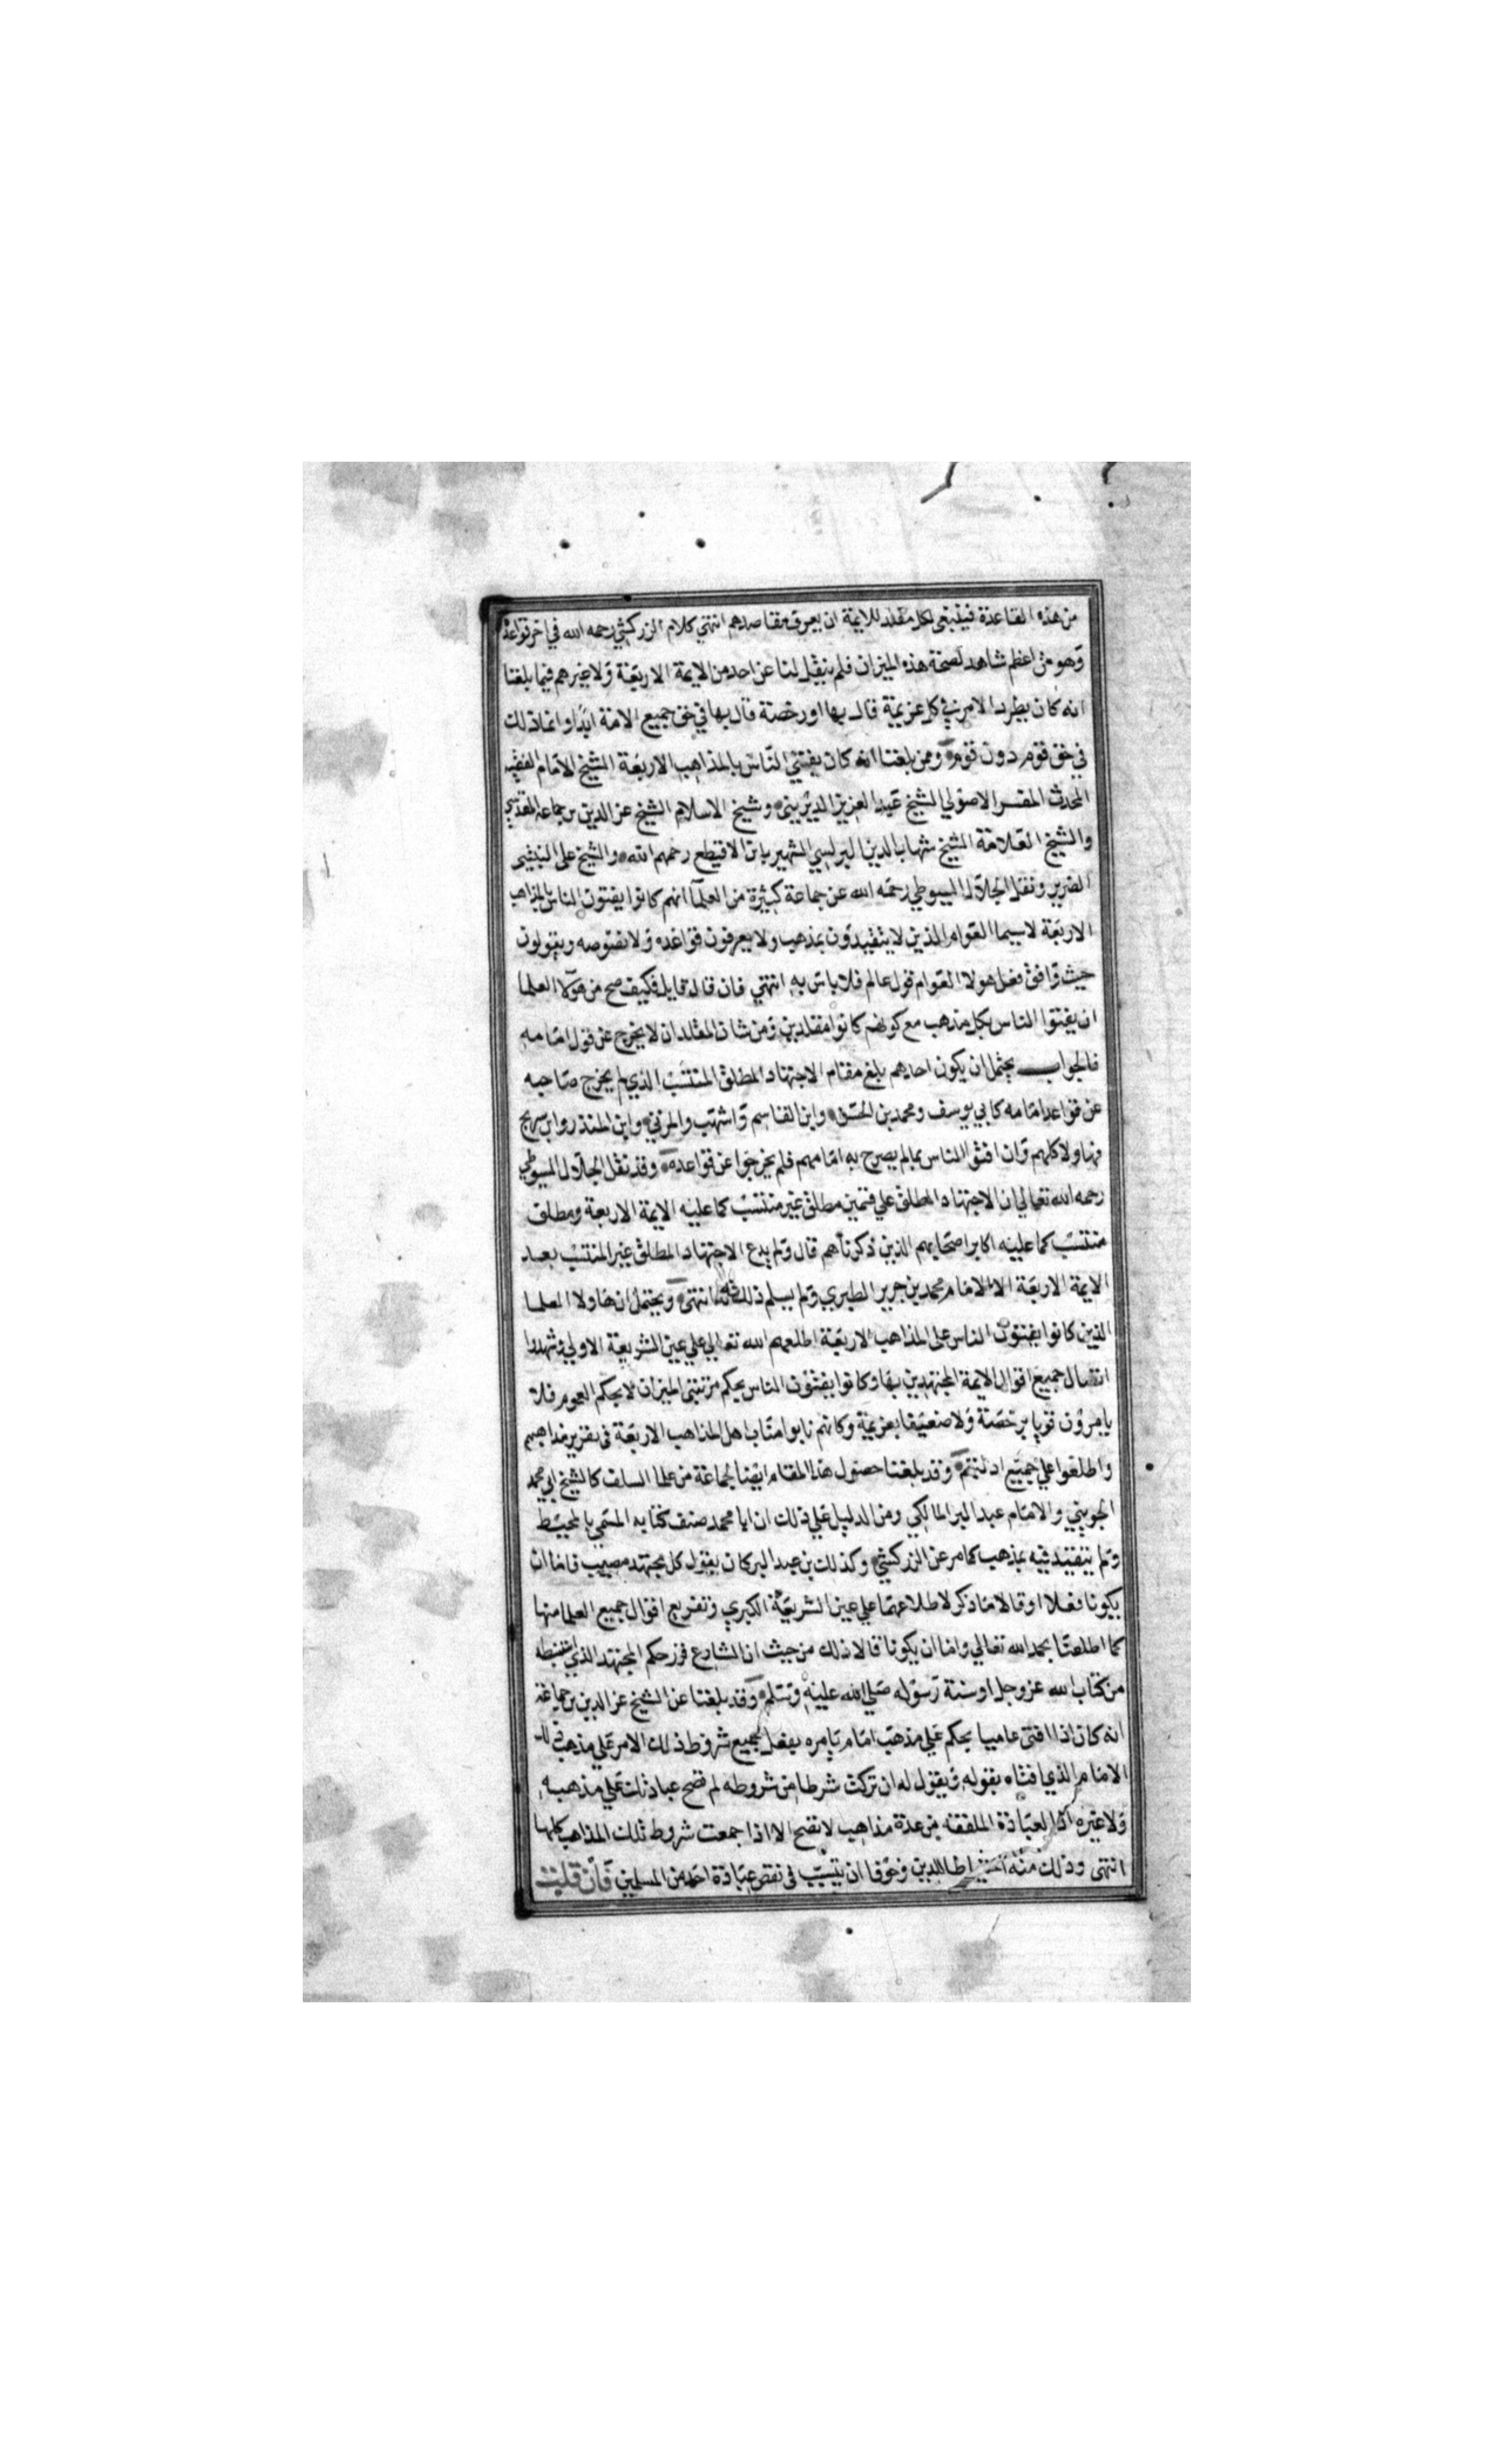 من هذه القاعدة فينبغى لكل مقلد للايمة ان يعرف مقاصدهم انتهي كلام الزركشي رحمه الله في اخر قواعده
وهو من اعظم شاهد لصحة هذه الميزان فلم ينقل لنا عن احد من الايمة الاربعة ولا غيرهم فيما بلغنا
انه كان يطرد الامر في كل عزيمة قال بها او رخصة قال بها في حق جميع الامة ابدا وانما ذلك
في حق قوم دون قوم وممن بلغنا انه كان يفتي الناس بالمذاهب الاربعة الشيخ الامام الفقيه
المحدث المفسر الاصولي الشيخ عبد العزيز الديريني وشيخ الاسلام الشيخ عز الدين بن جماعة المقدسي
والشيخ العلامة الشيخ شهاب الدين البرلسي الشهير بابن الاقيطع رحمهم الله والشيخ على النبتيتى
الضرير ونقل الجلال السيوطي رحمه الله عن جماعة كثيرة من العلما انهم كانوا يفتون الناس بالمذاهب
الاربعة لاسيما العوام الذين لا يتقيدون بمذهب ولا يعرفون قواعده ولا نصوصه ويقولون
حيث وافق فعل هولا العوام قول عالم فلا باس به انتهي فان قال قايل فكيف صح من هولا العلما
ان يفتوا الناس بكل مذهب مع كونهم كانوا مقلدين ومن شان المقلد ان لا يخرج عن قول امامه
فالجواب يحتمل ان يكون احدهم بلغ مقام الاجتهاد المطلق المنتسب الذي لم يخرج صاحبه
عن قواعد امامه كابي يوسف ومحمد بن الحسن وابن القاسم واشهب والمزني وابن المنذر وابن سريج
فهاولا كلهم وان افتوا الناس بمالم يصرح به امامهم فلم يخرجوا عن قواعده وقد نقل الجلال السيوطي
رحمه الله تعالي ان الاجتهاد المطلق علي قسمين مطلق غير منتسب كما عليه الايمة الاربعة ومطلق
منتسب كما عليه اكابر اصحابهم الذين ذكرناهم قال ولم يدع الاجتهاد المطلق غير المنتسب بعد
الايمة الاربعة الا الامام محمد بن جرير الطبري ولم يسلم ذلك له انتهى ويحتمل ان هاولا العلما
الذين كانوا يفتون الناس على المذاهب الاربعة اطلعهم الله تعالي علي عين الشريعة الاولي وشهدوا
اتصال جميع اقوال الايمة المجتهدين بها وكانوا يفتون الناس بحكم مرتبتى الميزان لا بحكم العموم فلا
يامرون قويا برخصة ولا ضعيفا بعزيمة وكانهم نابوا مناب اهل المذاهب الاربعة في تقرير مذاهبهم
واطلعوا علي جميع ادلتهم وقد بلغنا حصول هذا المقام ايضا لجماعة من علما السلف كالشيخ ابي محمد
الجويني والامام عبد البر المالكي ومن الدليل علي ذلك ان ابا محمد صنف كتابه المسمي بالمحيط
ولم يتقيد فيه بمذهب كما مر عن الزركشي وكذلك بن عبد البر كان يقول كل مجتهد مصيب فاما ان
يكونا فعلا او قالا ما ذكر لاطلاعهما علي عين الشريعة الكبري وتفريع اقوال جميع العلما منها
كما اطلعنا بحمد الله تعالي واما ان يكونا قالا ذلك من حيث ان الشارع قرر حكم المجتهد الذي استنبطه
من كتاب الله عز وجل او سنة رسوله صلي الله عليه وسلم وقد بلغنا عن الشيخ عز الدين بن جماعة
انه كان اذا افتى عاميا بحكم علي مذهب امام يامره بفعل جميع شروط ذلك الامر علي مذهب ذلك
الامام الذي افتاه بقوله ويقول له ان تركت شرطا من شروطه لم تصح عبادتك علي مذهبه
ولا غيره اذ العبادة الملفقه من عدة مذاهب لا تصح الا اذا جمعت شروط تلك المذاهب كلها
انتهى وذلك منه احتياطا للدين وخوفا ان يتسبب في نقص عبادة احد من المسلمين فان قلت